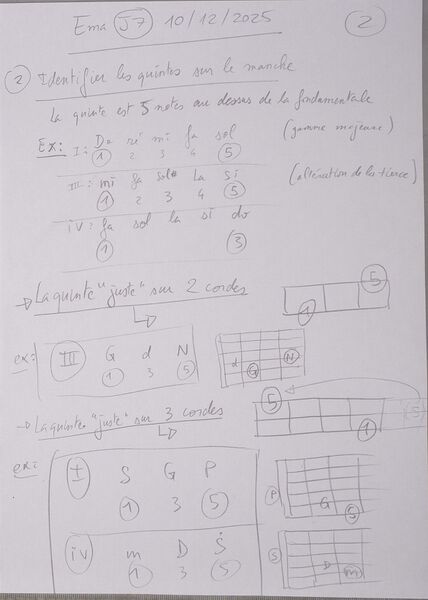 Ema J7 10/12/2025 2
2 Identifier les quintes sur le manche
La quinte est 5 notes au dessus de la fondamentale
Ex: I: Do ré mi fa sol (gamme majeure)
1 2 3 4 5
III: mi fa sol# La Si (altération de la tierce)
1 2 3 4 5
IV: fa sol la si do
1 3
→ La quinte "juste" sur 2 cordes
1 5
ex: III G d N
1 3 5
d G N
→ La quinte "juste" sur 3 cordes
5 1 5
ex: I S G P
1 3 5
P G S
IV m D S
1 3 5
S D m